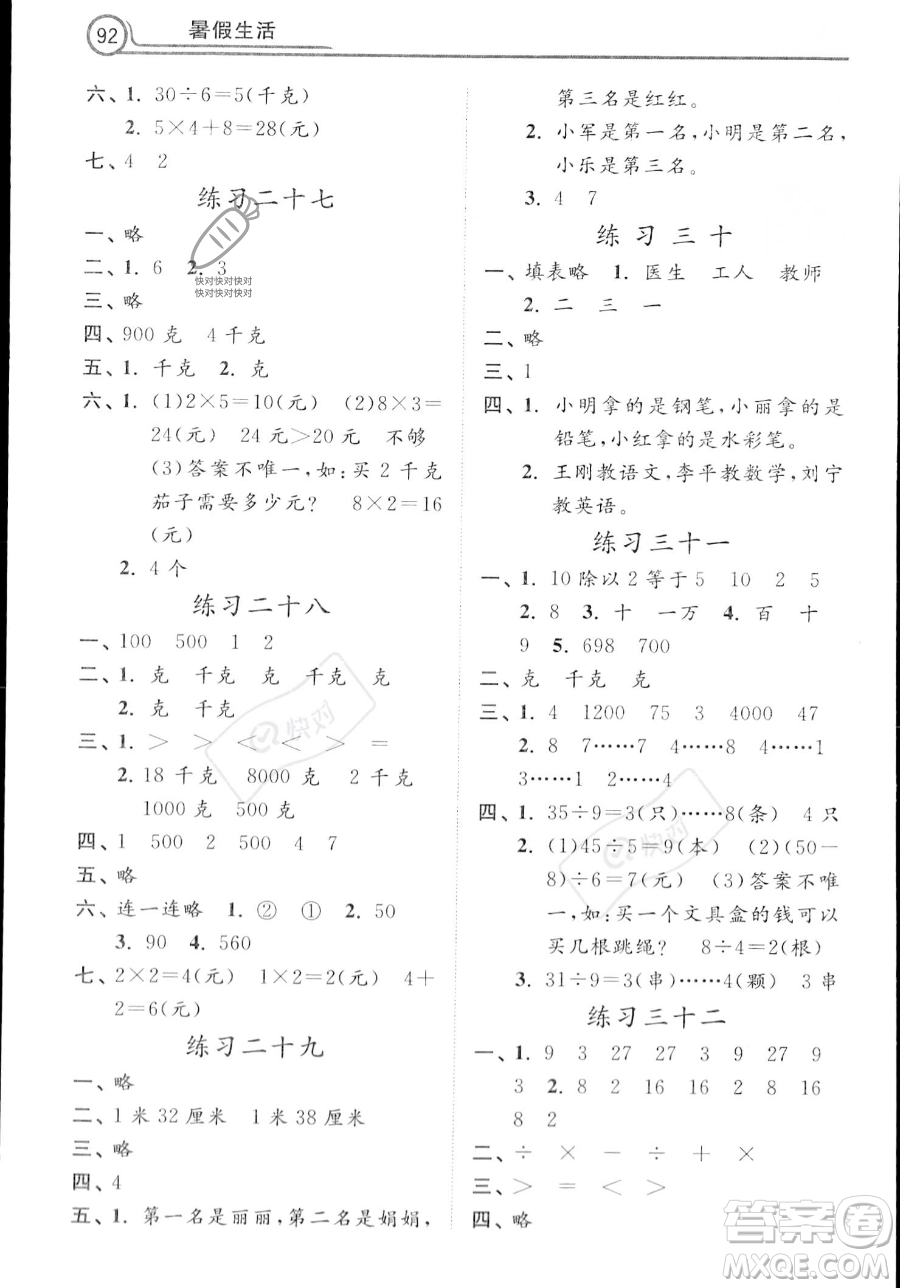 92 暑假生活
六、1. 30÷6=5(千克)
2. 5×4+8=28(元)
七、4 2
练习二十七
一、略
二、1. 6 2. 3
快对快对快对
快对快对快对
三、略
四、900 克 4 千克
五、1. 千克 2. 克
六、1. (1)2×5=10(元) (2)8×3=
24(元) 24 元>20 元 不够
(3)答案不唯一,如:买 2 千克
茄子需要多少元? 8×2=16
(元)
2. 4 个
练习二十八
一、100 500 1 2
二、1. 克 千克 克 克 千克
2. 克 千克
三、1. > > < < > =
2. 18 千克 8000 克 2 千克
1000 克 500 克
四、1 500 2 500 4 7
五、略
六、连一连略 1. ② ① 2. 50
3. 90 4. 560
七、2×2=4(元) 1×2=2(元) 4+
2=6(元)
练习二十九
一、略
二、1 米 32 厘米 1 米 38 厘米
三、略
四、4
五、1. 第一名是丽丽,第二名是娟娟,
第三名是红红。
2. 小军是第一名,小明是第二名,
小乐是第三名。
3. 4 7
练习三十
一、填表略 1. 医生 工人 教师
2. 二 三 一
二、略
三、1
四、1. 小明拿的是钢笔,小丽拿的是
铅笔,小红拿的是水彩笔。
2. 王刚教语文,李平教数学,刘宁
教英语。
练习三十一
一、1. 10 除以 2 等于 5 10 2 5
2. 8 3. 十 一万 4. 百 十
9 5. 698 700
二、克 千克 克
三、1. 4 1200 75 3 4000 47
2. 8 7……7 4……8 4……1
3……1 4……1
四、1. 35÷9=3(只)……8(条) 4 只
2. (1)45÷5=9(本) (2)(50-
8)÷6=7(元) (3)答案不唯
一,如:买一个文具盒的钱可以
买几根跳绳? 8÷4=2(根)
3. 31÷9=3(串)……4(颗) 3 串
练习三十二
一、1. 9 3 27 27 3 27 9
3 2. 8 2 16 16 2 8 16
8 2
二、÷ × - ÷ + ×
三、> = = > < >
四、略
快对
快对
答案卷
MXQE.COM